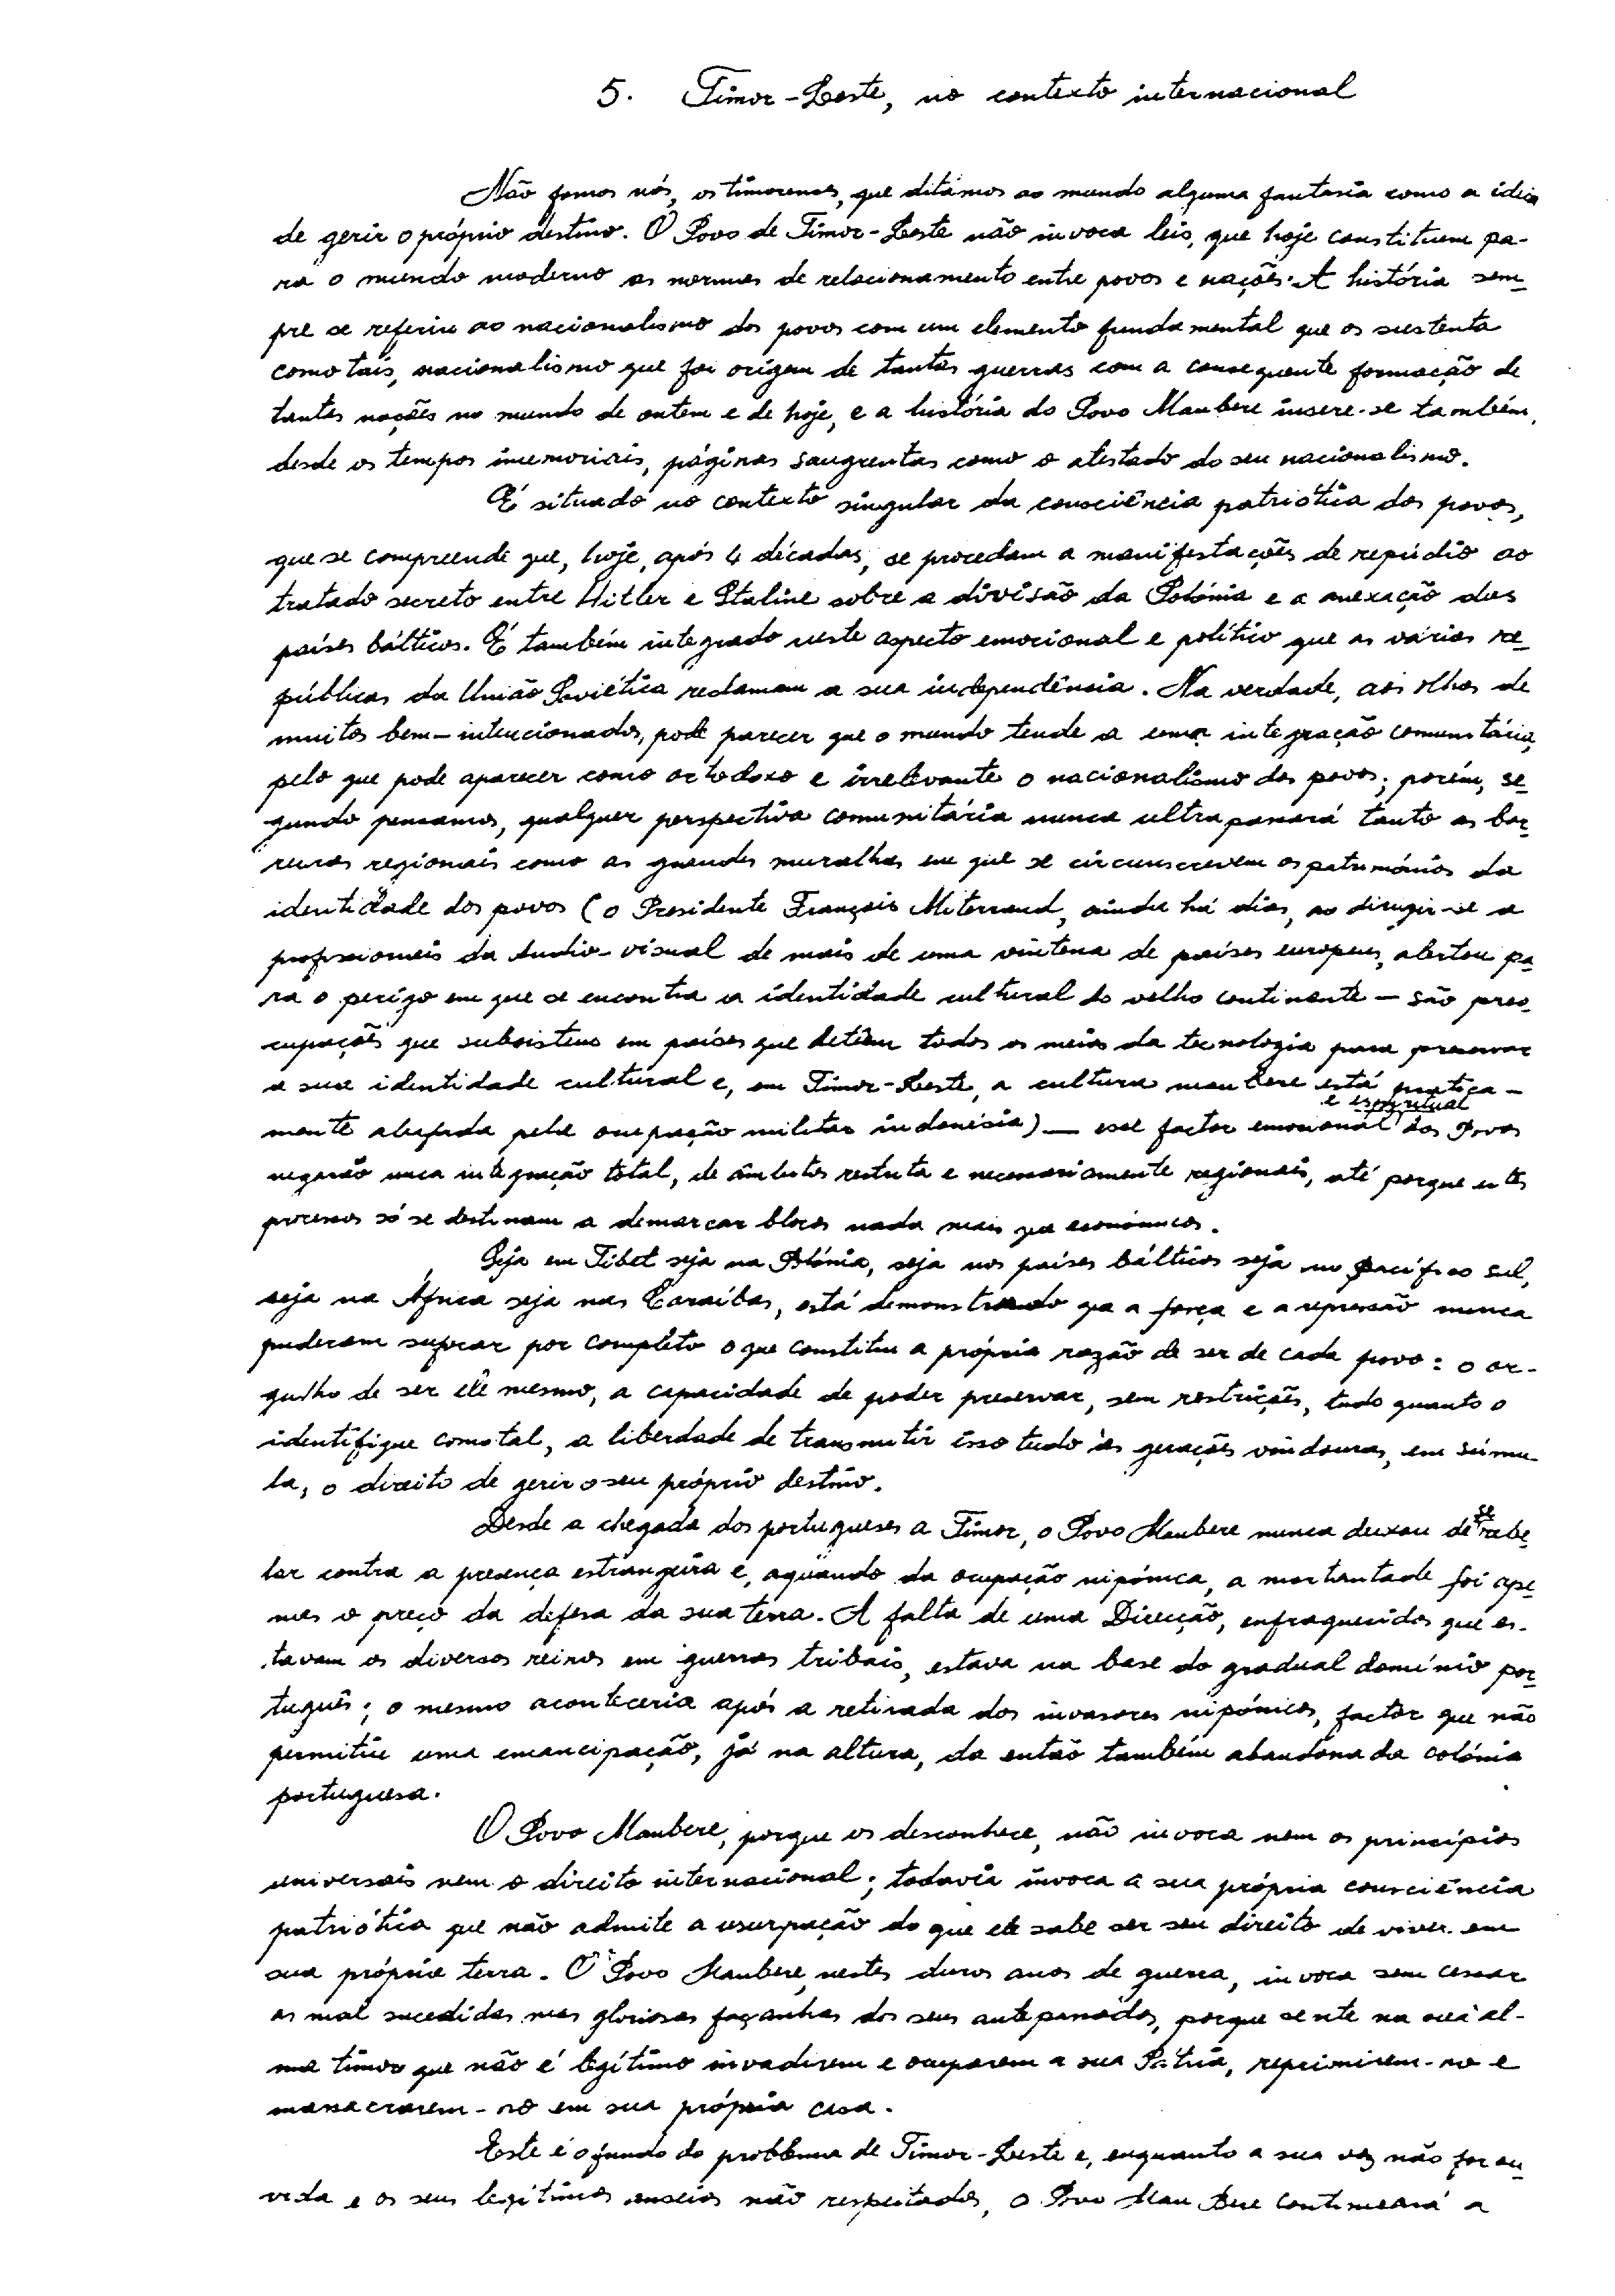 5. Timor-Leste, no contexto internacional
Não fomos nós, os timorenses, que ditámos ao mundo alguma fantasia como a ideia
de gerir o próprio destino. O Povo de Timor-Leste não invoca leis, que hoje constituem pa-
ra o mundo moderno as normas de relacionamento entre povos e nações. A história sem-
pre se referiu ao nacionalismo dos povos com um elemento fundamental que os sustenta
como tais, nacionalismo que foi origem de tantas guerras com a consequente formação de
tantas nações no mundo de ontem e de hoje, e a história do Povo Maubere insere-se também,
desde os tempos imemoriais, páginas sangrentas como o atestado do seu nacionalismo.
É situado no contexto singular da consciência patriótica dos povos,
que se compreende que, hoje, após 4 décadas, se procedam a manifestações de repúdio ao
tratado secreto entre Hitler e Staline sobre a divisão da Polónia e a anexação dos
países bálticos. É também integrado neste aspecto emocional e político que as várias re-
públicas da União Soviética reclamam a sua independência. Na verdade, aos olhos de
muitos bem-intencionados, pode parecer que o mundo tende a uma integração comunitária,
pelo que pode aparecer como ortodoxo e irrelevante o nacionalismo dos povos; porém, se-
gundo pensamos, qualquer perspectiva comunitária nunca ultrapassará tanto as bar-
reiras regionais como as grandes muralhas em que se circunscrevem os patrimónios da
identidade dos povos (o Presidente François Miterrand, ainda há dias, ao dirigir-se a
profissionais da Audio-visual de mais de uma vintena de países europeus, alertou pa-
ra o perigo em que se encontra a identidade cultural do velho continente — são preo-
cupações que subsistem em países que detêm todos os meios da tecnologia para preservar
a sua identidade cultural e, em Timor-Leste, a cultura maubere está pratica-
mente abafada pela ocupação militar indonésia) — esse factor emocional e espiritual dos Povos
negarão uma integração total, de âmbitos restrita e necessariamente regionais, até porque estes
processos só se destinam a demarcar blocos nada mais que económicos.
Seja em Tibet seja na Polónia, seja nos países bálticos seja no Pacífico sul,
seja na África seja nas Caraíbas, está demonstrado que a força e a repressão nunca
puderam sufocar por completo o que constitui a própria razão de ser de cada povo: o or-
gulho de ser ele mesmo, a capacidade de poder preservar, sem restrições, tudo quanto o
identifique como tal, a liberdade de transmitir isso tudo às gerações vindouras, em súmu-
la, o direito de gerir o seu próprio destino.
Desde a chegada dos portugueses a Timor, o Povo Maubere nunca deixou de se rebe-
lar contra a presença estrangeira e, aquando da ocupação nipónica, a mortandade foi ape-
nas o preço da defesa da sua terra. A falta de uma Direcção, enfraquecidos que es-
tavam os diversos reinos em guerras tribais, estava na base do gradual domínio por-
tuguês; o mesmo aconteceria após a retirada dos invasores nipónicos, factor que não
permitiu uma emancipação, já na altura, da então também abandonada colónia
portuguesa.
O Povo Maubere, porque os desconhece, não invoca nem os princípios
universais nem o direito internacional; todavia invoca a sua própria consciência
patriótica que não admite a usurpação do que ele sabe ser seu direito de viver em
sua própria terra. O Povo Maubere, nestes duros anos de guerra, invoca sem cessar
as mal sucedidas mas gloriosas façanhas dos seus antepassados, porque sente na sua al-
ma timor que não é legítimo invadirem e ocuparem a sua Pátria, reprimirem-no e
massacrarem-no em sua própria casa.
Este é o fundo do problema de Timor-Leste e, enquanto a sua voz não for ou-
vida e os seus legítimos anseios não respeitados, o Povo Mau Bere continuará a